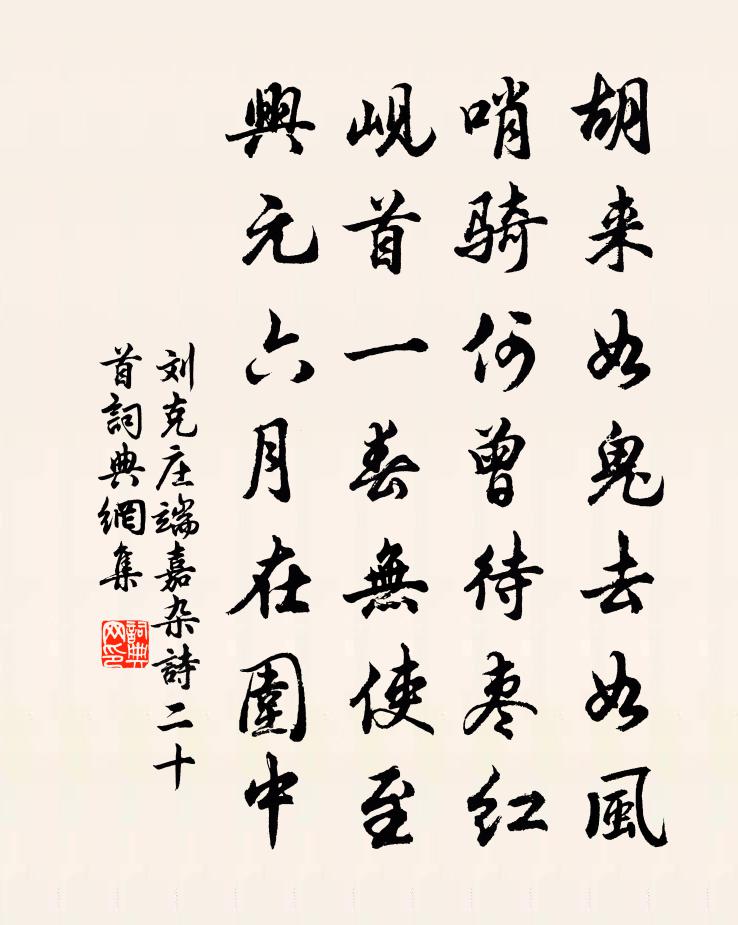 胡来如鬼去如風
哨骑何曾待枣红
峴首一春無使至
興元六月在圍中
刘克庄端嘉杂詩二十
首詞典網集
詞典网印